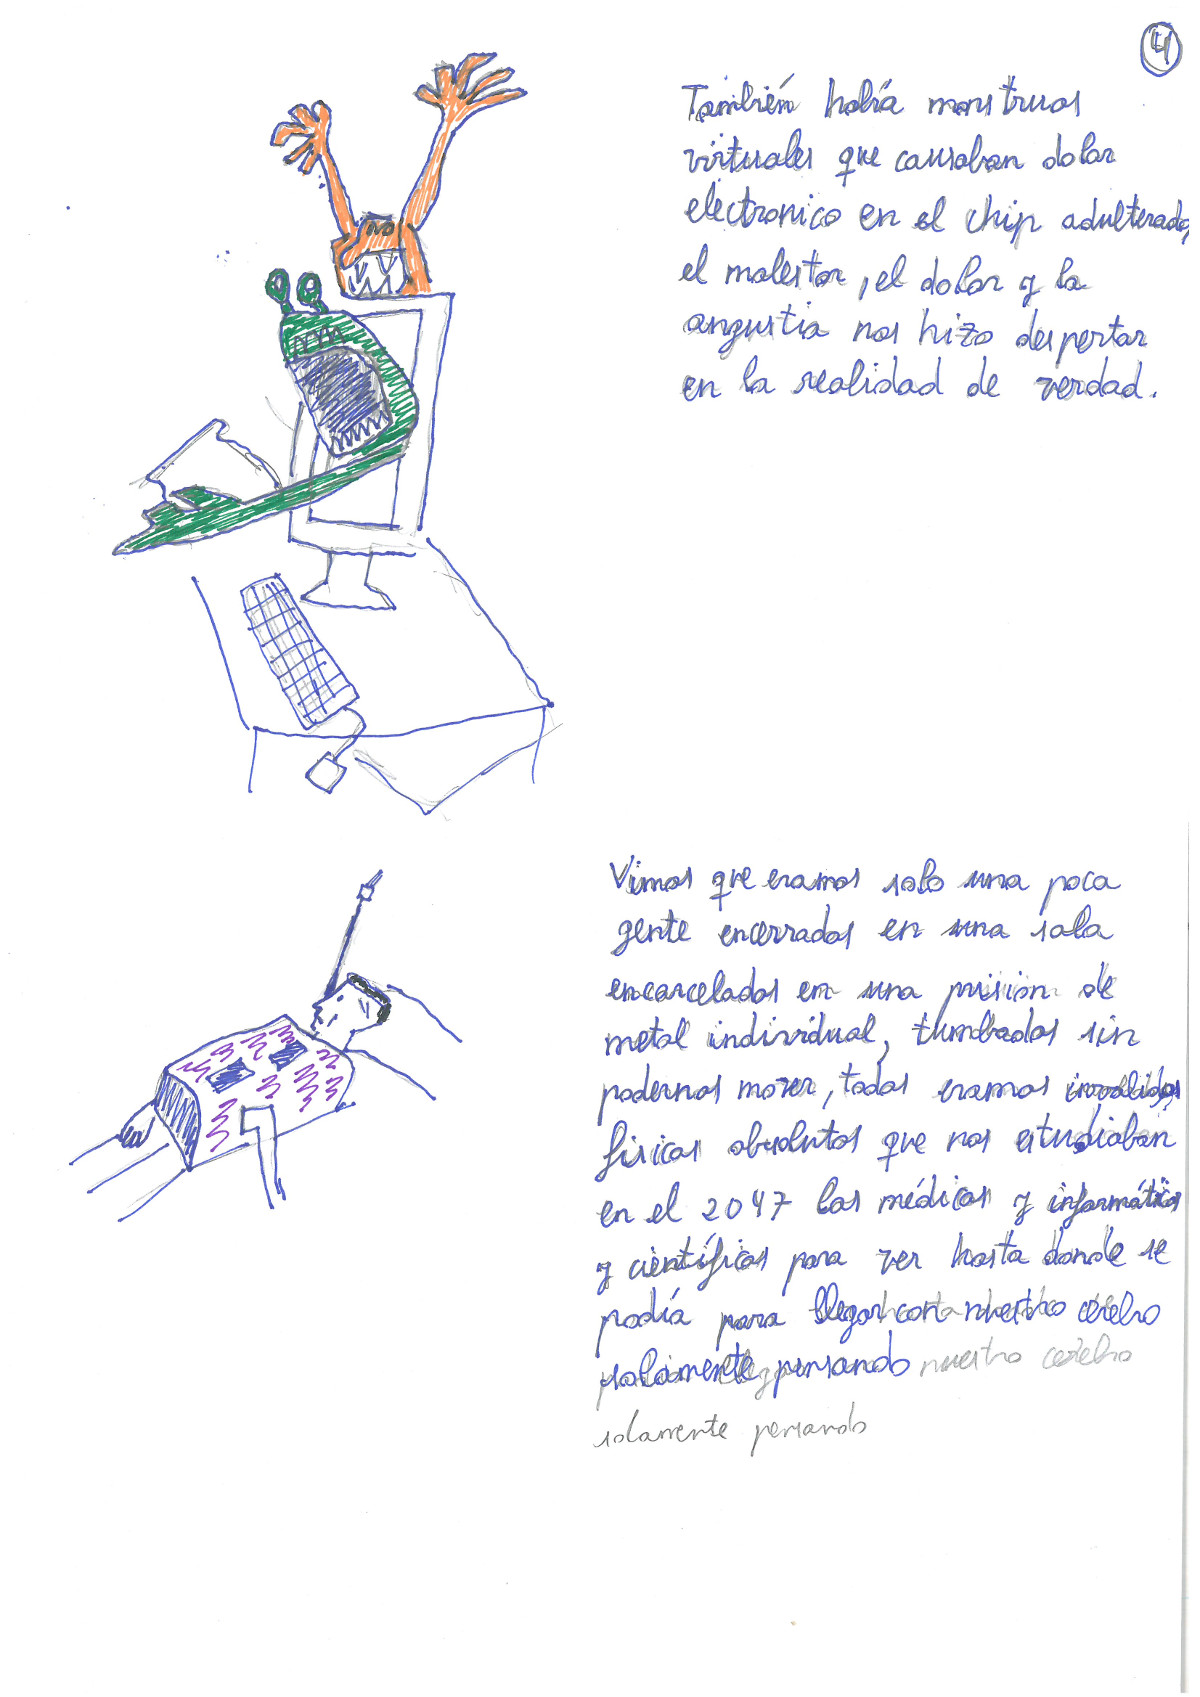 4
También había monstruos
virtuales que causaban dolor
electronico en el chip adulterado,
el malestar, el dolor y la
angustia nos hizo despertar
en la realidad de verdad.
Vimos que eramos solo una poca
gente encerrados en una sala
encarcelados en una prision de
metal individual, tumbados sin
podernos mover, todos eramos invalidos
fisicos absolutos que nos estudiaban
en el 2047 los médicos y informáticos
y científicos para ver hasta donde se
podía para llegar con nuestro cerebro
solamente pensando nuestro cerebro
solamente pensando